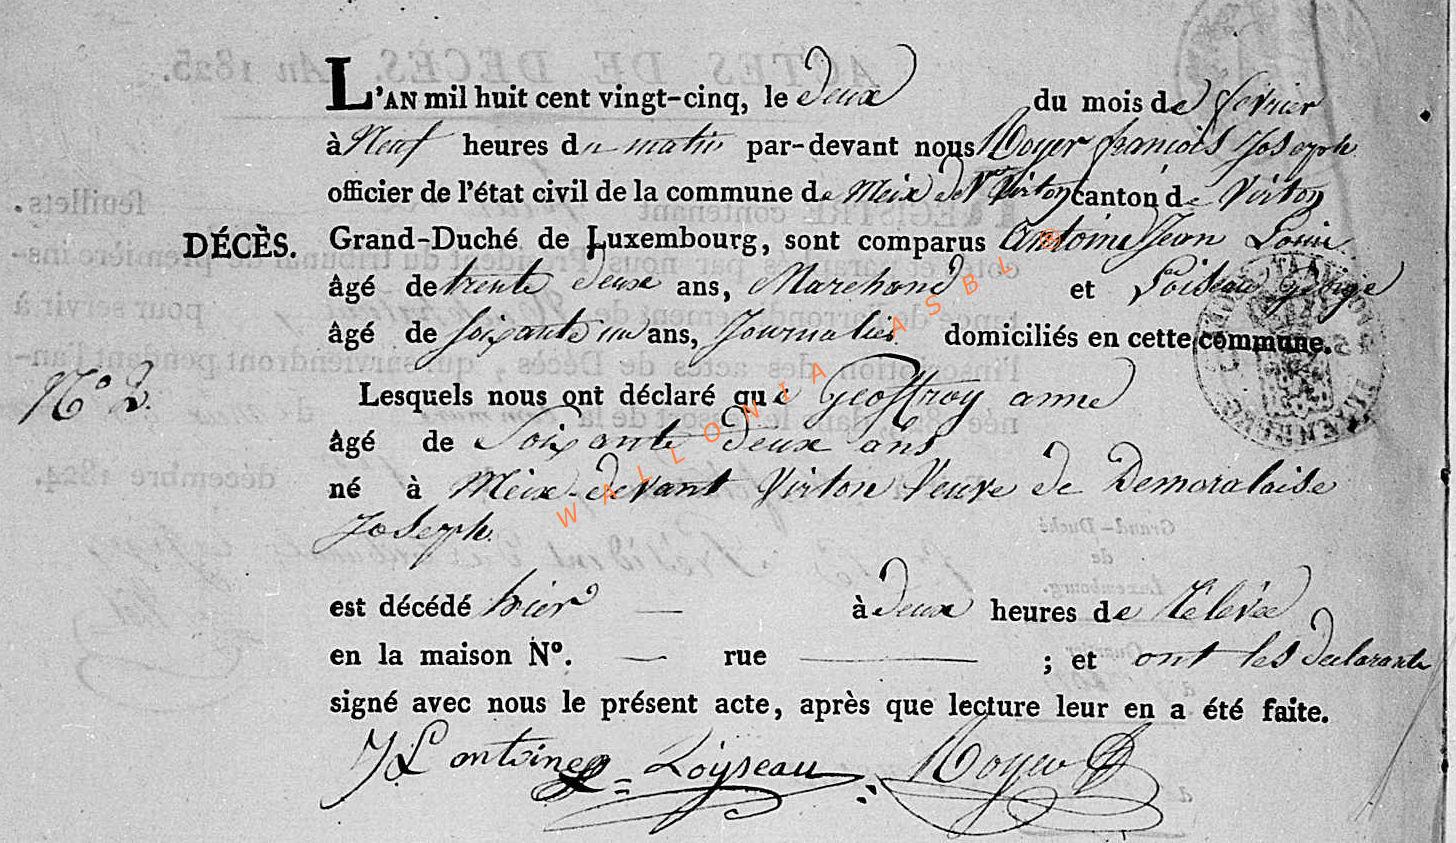 L'AN mil huit cent vingt-cinq, le deux du mois de fevrier
à Neuf heures du matin par-devant nous Royer françois Joseph
officier de l'état civil de la commune de Meix dev.t Virton canton de Virton
DÉCÈS. Grand-Duché de Luxembourg, sont comparus Antoine Jean Louis
âgé de trente deux ans, Marchand et Loiseau george
âgé de soixante un ans, Journalier domiciliés en cette commune.
N.o 2. Lesquels nous ont déclaré que Geoffroy anne
âgé de Soixante deux ans
né à Meix-devant Virton Veuve de Demoralaise
Joseph.
est décédé hier — à deux heures de relevée
en la maison N.o — rue — ; et ont les declarants
signé avec nous le présent acte, après que lecture leur en a été faite.
JL antoine Loÿseau Royer
WALLONIA ASBL ®